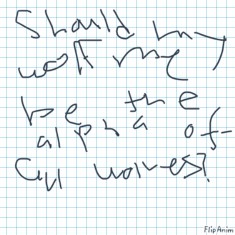 Should my
wolf
be the
alpha of
all wolves?
FlipAnim